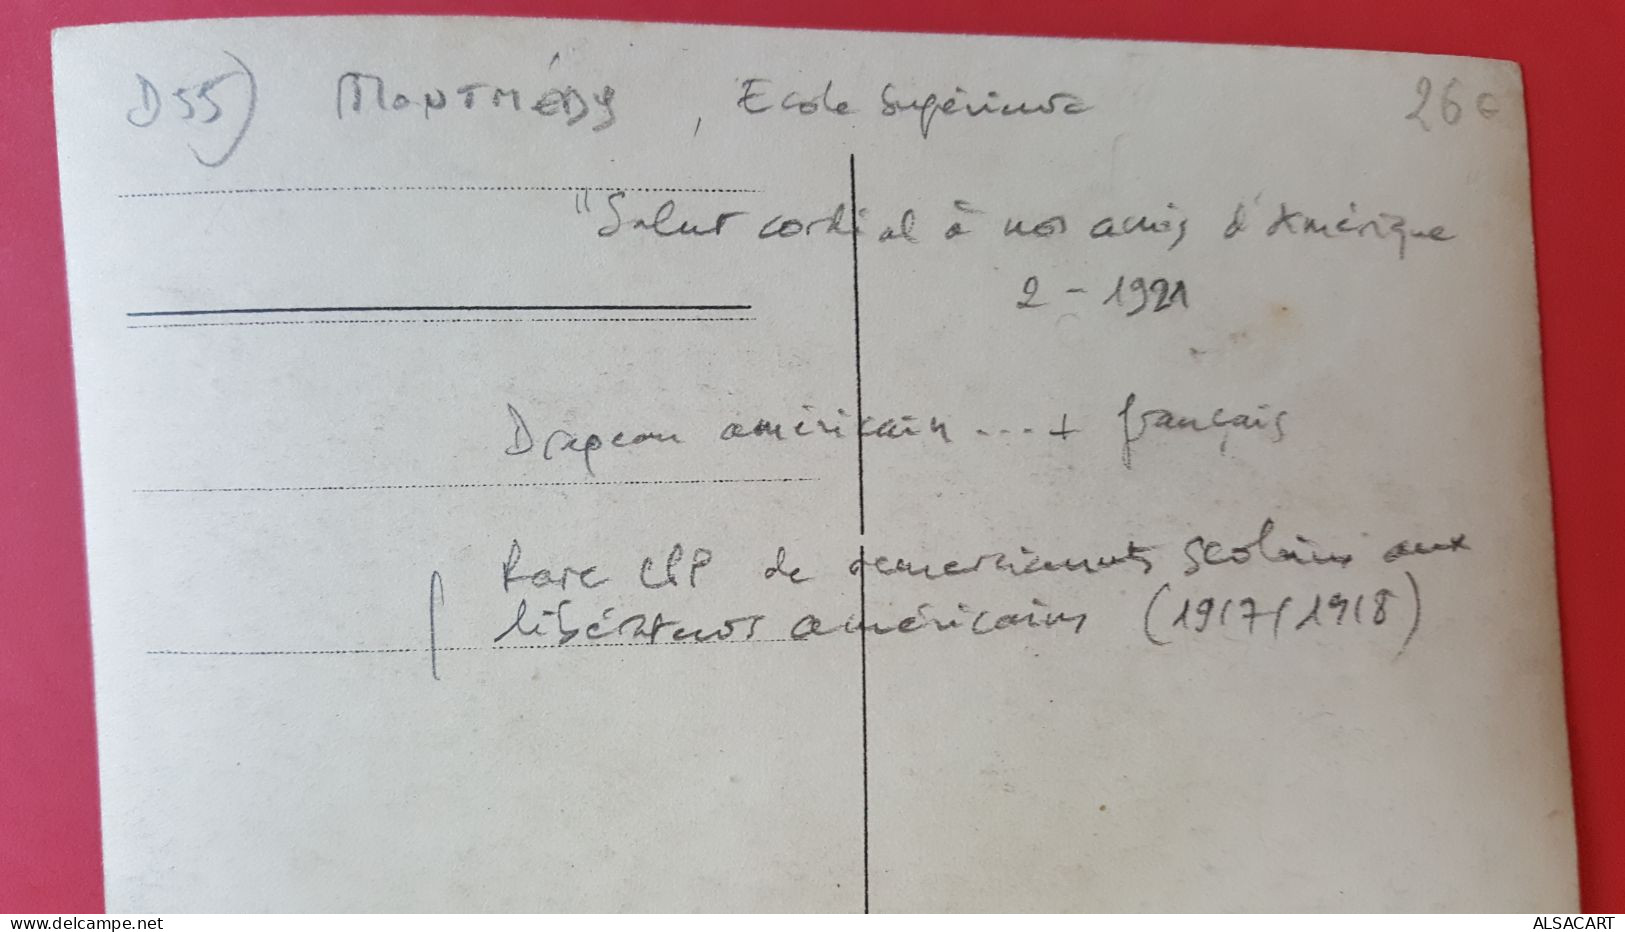 D55) MONTMÉDY, Ecole Supérieure 260
"Salut cordial à nos amis d'Amérique
2 - 1921
Drapeau américain ... + français
Rare CP de remerciements scolaires aux
libérateurs américains (1917/1918)
delcampe.net
ALSACART